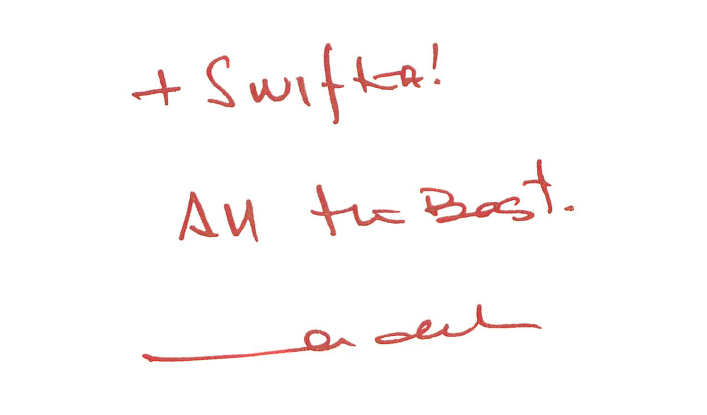 + Swifta!
All the Best.